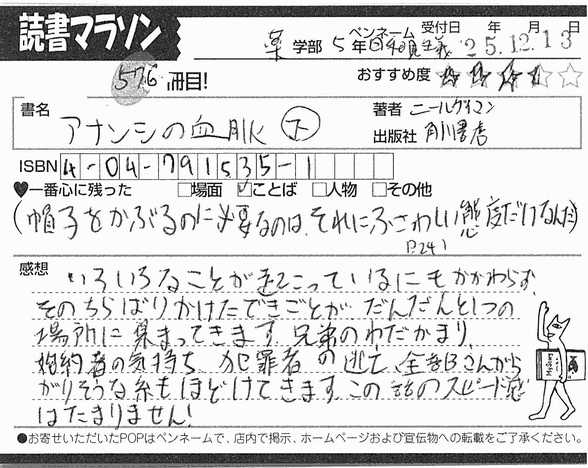 読書マラソン
ペンネーム 受付日 年 月 日
薬 学部 5年 日和見主義 '25.12.13
576冊目!
おすすめ度
書名
アナンシの血脈 下
著者 ニールゲイマン
出版社 角川書店
ISBN 4-04-791535-1
♥一番心に残った □場面 ☑ことば □人物 □その他
(帽子をかぶるのに必要なのは、それにふさわしい態度だけなんだ)
P.241
感想
いろいろなことが起こっているにもかかわらず、
そのちらばりかけたできごとが、だんだんと1つの
場所に集まってきます。兄弟のわだかまり、
婚約者の気持ち、犯罪者の逃亡、全部こんがら
がりそうな糸もほどけてきます。この話のスピード感
はたまりません!
●お寄せいただいたPOPはペンネームで、店内で掲示、ホームページおよび宣伝物への転載をご了承ください。